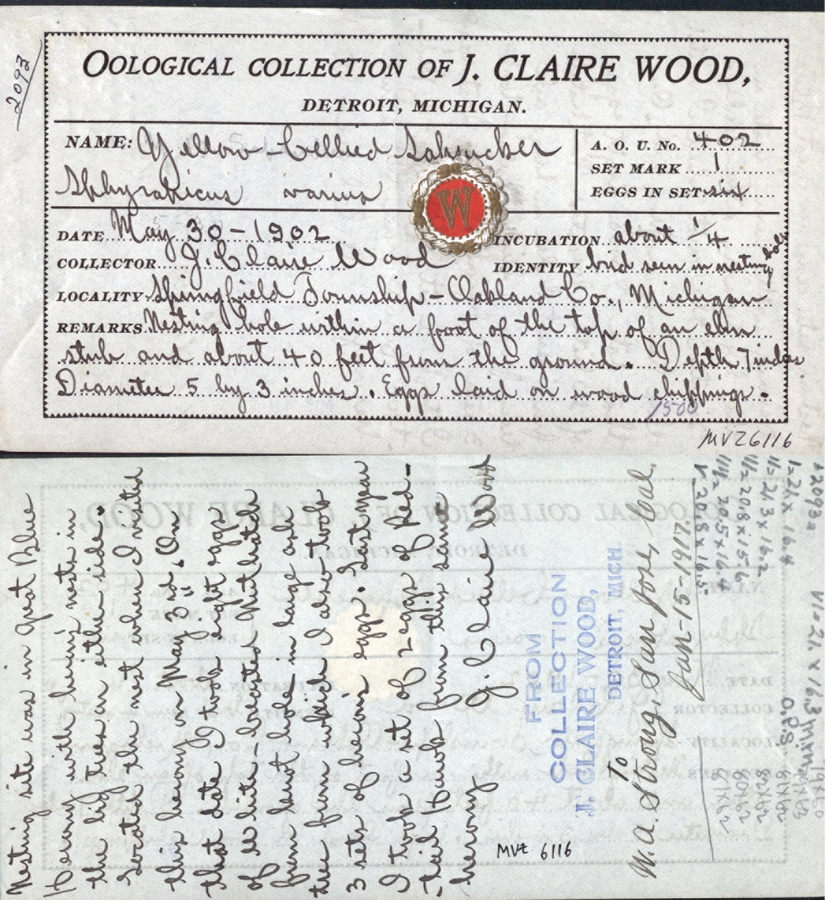 2092
OOLOGICAL COLLECTION OF J. CLAIRE WOOD,
DETROIT, MICHIGAN.
NAME: Yellow-bellied Sapsucker
Sphyrapicus varius
A. O. U. No. 402
SET MARK 1
EGGS IN SET six
W
DATE May 30-1902
INCUBATION about 1/4
COLLECTOR J. Claire Wood
IDENTITY bird seen in nesting hole
LOCALITY Springfield Township - Oakland Co., Michigan
REMARKS Nesting hole within a foot of the top of an elm
stub and about 40 feet from the ground. Depth 7 inches
Diameter 5 by 3 inches. Eggs laid on wood chippings.
1500
MVZ 6116
Nesting site was in Great Blue
Herony with heron's nests in
the big trees on either side.
Located the nest when I visited
this herony on May 3rd. On
that date I took eight eggs
of White-breasted Nuthatch
from knot hole in large ash
tree from which I also took
3 sets of herons eggs. Last year
I took a set of 2 eggs of Red-
tail Hawk from this same
herony. J. Claire Wood
FROM
COLLECTION
J. CLAIRE WOOD,
DETROIT, MICH.
To
W. A. Strong, San Jose, Cal.
Jan-15-1917.
MVZ 6116